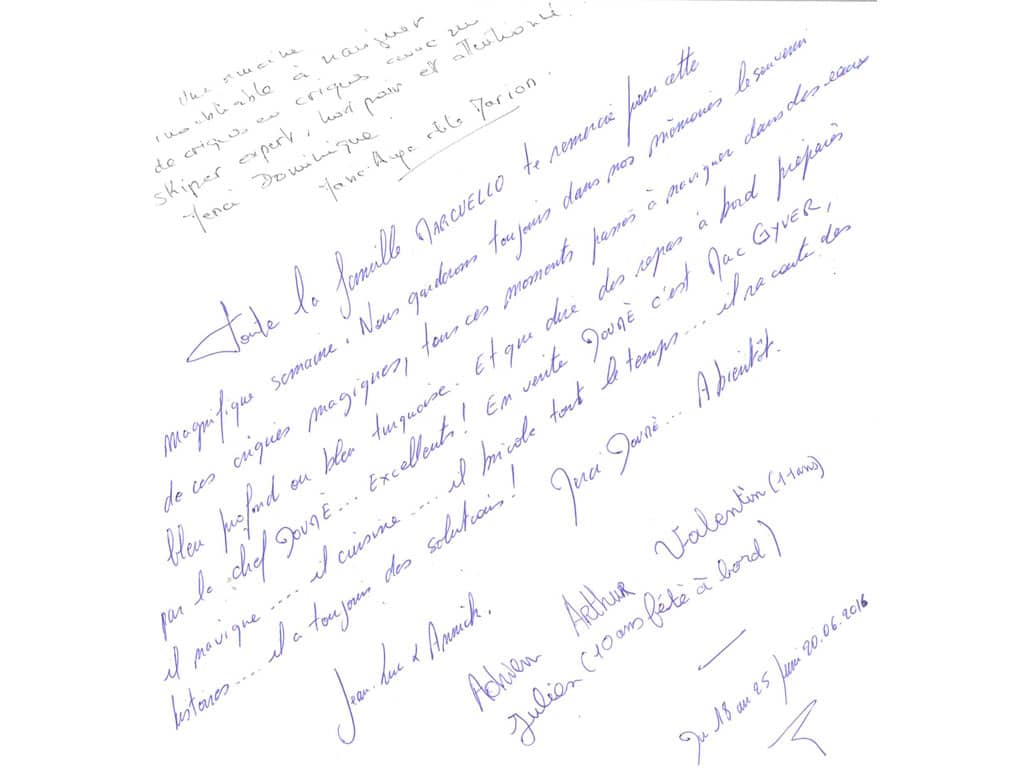 Une semaine
inoubliable à naviguer
de criques en criques avec un
skiper expert, hors pair et attentionné.
Merci Dominique.
Marc-Ange et la Marion.
Toute la famille MARCUELLO te remercie pour cette
magnifique semaine. Nous garderons toujours dans nos mémoires le souvenir
de ces criques magiques, tous ces moments passés à naviguer dans des eaux
bleu profond ou bleu turquoise. Et que dire des repas à bord préparés
par le chef DOUMÈ... Excellents! En vérité DOUMÈ c'est Mac GYVER,
il navigue.... il cuisine.... il bricole tout le temps.... il raconte des
histoires.... il a toujours des solutions! Merci DOUMÈ... A bientôt.
Jean-Luc & Annick.
Adrien Arthur Valentin (11 ans)
Julien (10 ans fêté à bord)
Du 18 au 25 Juin 20.06.2016